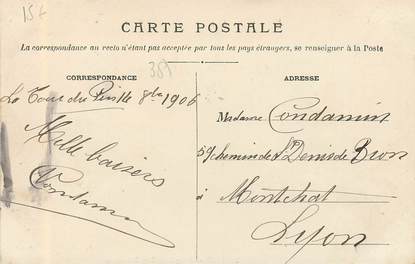 15€
CARTE POSTALE
La correspondance au recto n'étant pas acceptée par tous les pays étrangers, se renseigner à la Poste
CORRESPONDANCE
ADRESSE
La Tour du Pin le 8bre 1906
Mille baisers
Condamin
Madame Condamin
59 chemin de St Denis de Bron
à Montchat
Lyon